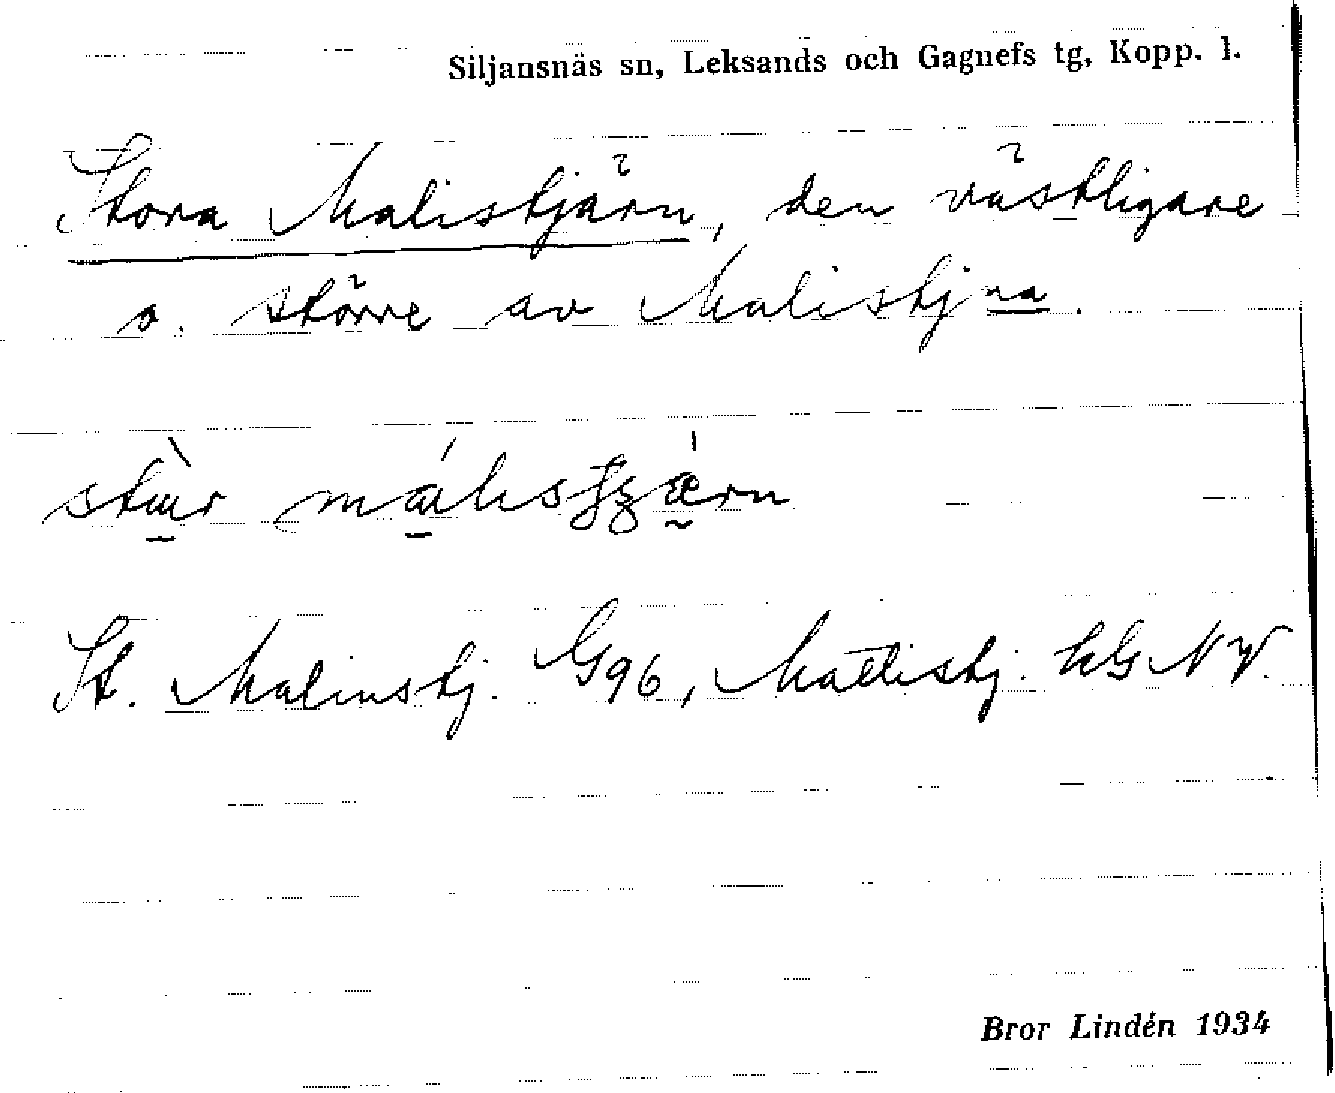 Siljansnäs sn, Leksands och Gagnefs tg, Kopp. l.
Stora Malistjärn, den västligare
o. större av Malistjna.
St. Malinstj. G96, Mattistj. hG NV.
Bror Lindén 1934